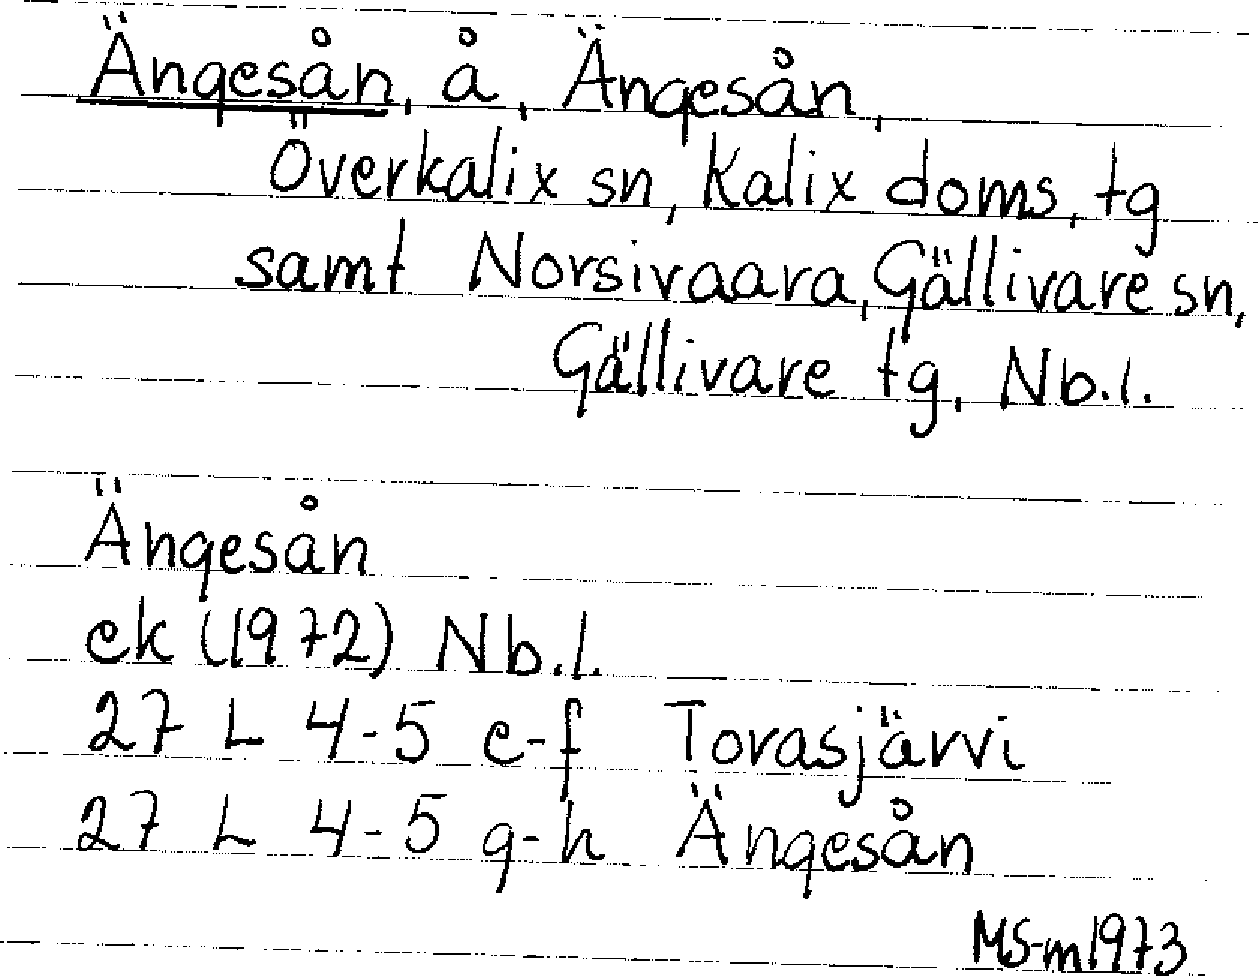 Ängesån, å, Ängesån,
Överkalix sn, Kalix doms, tg
samt Norsivaara, Gällivare sn,
Gällivare tg, Nb.l.
Ängesån
ek (1972) Nb.l.
27 L 4-5 e-f Torasjärvi
27 L 4-5 g-h Ängesån
MS-m1973